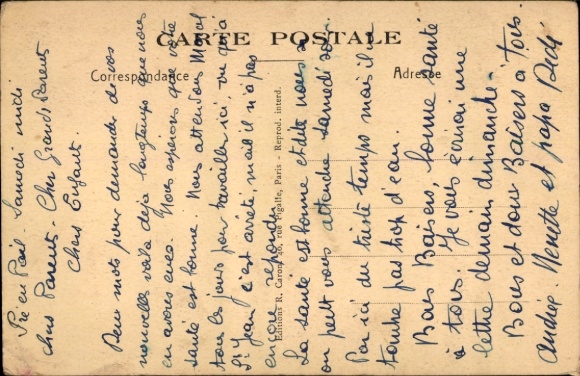 CARTE POSTALE
Correspondance
Adresse
Editions R. Caron, rue Pigalle, Paris - Reprod. interd.
Pré en Pail. Samedi midi
chers Parents. Cher Grands Parents
Chers Enfants.
Deux mots pour demander de vos
nouvelles voila deja longtemps que nous
en avons eues. Nous espérons que votre
santé est bonne. Nous attendons Marcel
tous les jours pour travailler ici, vu qu'à
St Jean c'est arrêté, mais il n'a pas
encore repondu.
La santé est bonne et dite nous si
on peut vous attendre samedi soir.
Par ici du triste temps mais il ne
tombe pas trop d'eau.
Bons Baisers, bonne santé
à tous. Je vous écrirai une
lettre demain dimanche.
Bons et doux Baisers à Tous.
Andrée. Nenette et papa Dédé